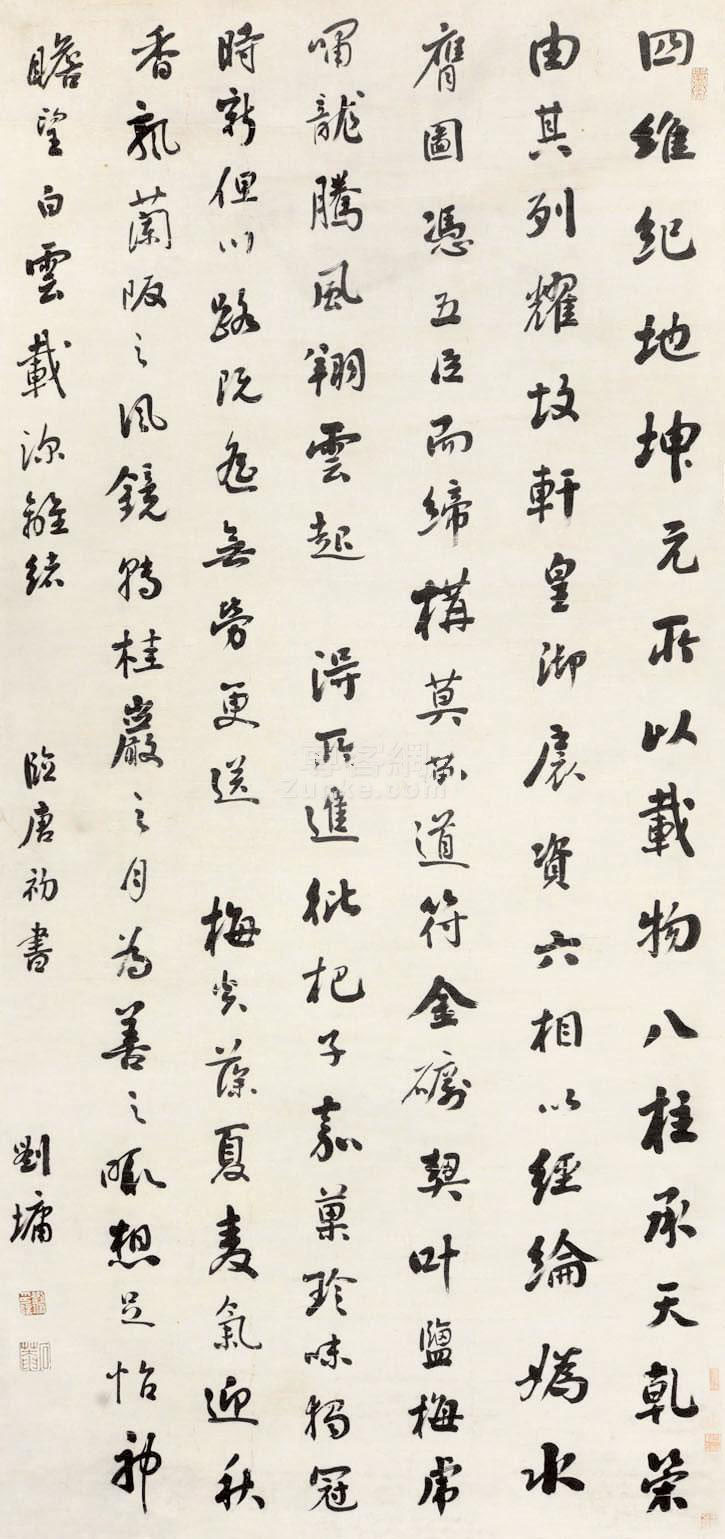 四維紀地坤元所以載物八柱承天乾策
由其列耀故軒皇御扆資六相以經綸媯水
膺圖憑五臣而締構莫不道符金礪契叶鹽梅虎
嘯龍騰風翔雲起 得所進枇杷子嘉菓珍味獨冠
時新但川路既遙無勞更送 梅炎藻夏麥氣迎秋
香飄蘭阪之風鏡轉桂巖之月為善之暇想足怡神
瞻望白雲載深離緒 臨唐初書 劉墉
尊客網
Zunke.com